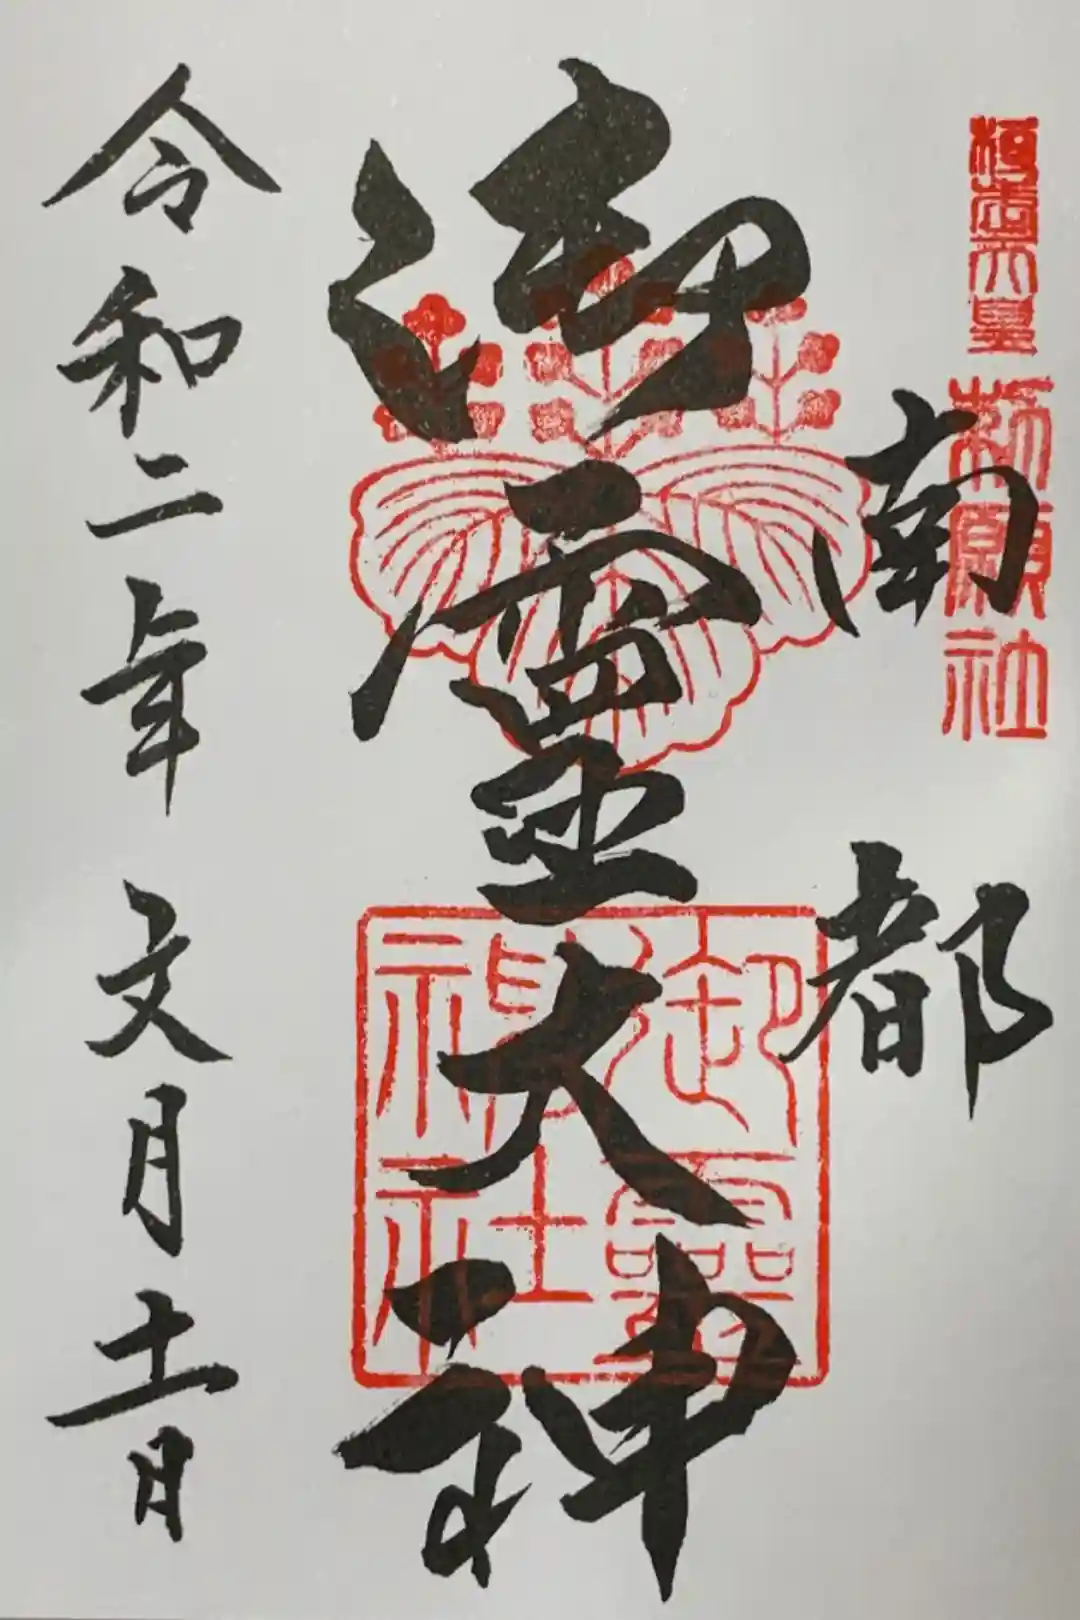 桓武天皇
勅願社
南都
御霊大神
御霊神社
令和二年文月十一日